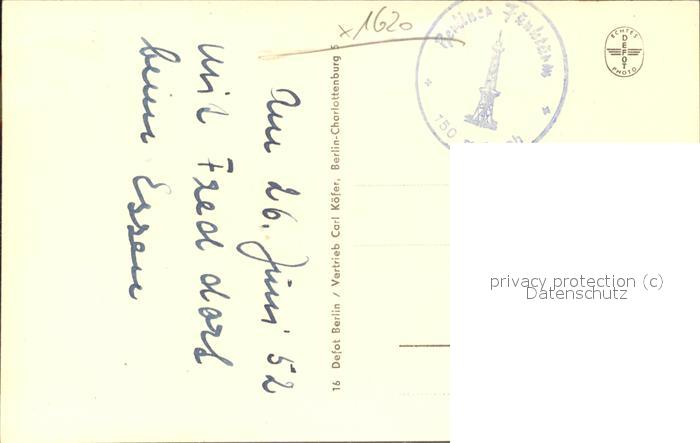 x1620
Berliner Funkturm
150
ECHTES
DEFOT
PHOTO
Am 26. Juni 52
mit Fred dort
beim Essen
16 Defot Berlin / Vertrieb Carl Köfer, Berlin-Charlottenburg 5
privacy protection (c)
Datenschutz